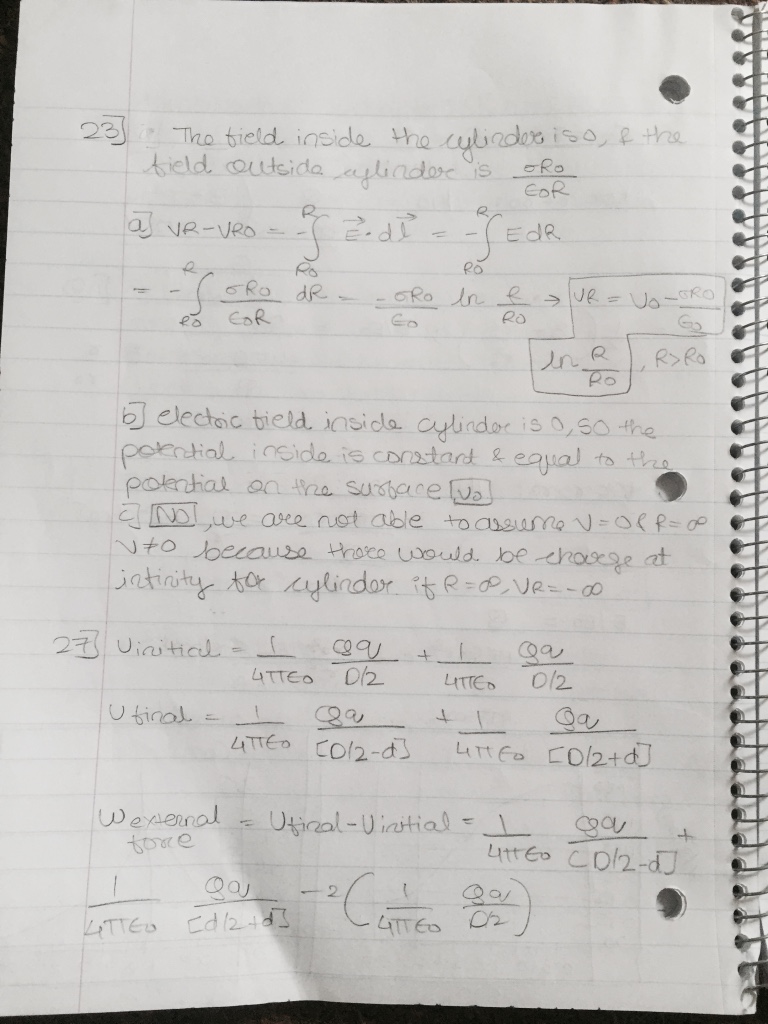 23] The field inside the cylinder is 0, & the
field outside cylinder is σR0/ϵ0R
a] VR-VR0 = -∫_{R0}^{R} E⃗·dl⃗ = -∫_{R0}^{R} E dR
= -∫_{R0}^{R} σR0/ϵ0R dR = -σR0/ϵ0 ln R/R0 → VR = V0 - σR0/ϵ0
ln R/R0, R>R0
b] electric field inside cylinder is 0, so the
potential inside is constant & equal to the
potential on the surface V0
c] NO, we are not able to assume V=0 & R=∞
V≠0 because there would be charge at
infinity for cylinder if R=∞, VR=-∞
27] Uinitial = 1/4πϵ0 Qq/D/2 + 1/4πϵ0 Qq/D/2
Ufinal = 1/4πϵ0 Qq/[D/2-d] + 1/4πϵ0 Qq/[D/2+d]
Wexternal force = Ufinal-Uinitial = 1/4πϵ0 Qq/[D/2-d] +
1/4πϵ0 Qq/[d/2+d] -2(1/4πϵ0 Qq/D/2)